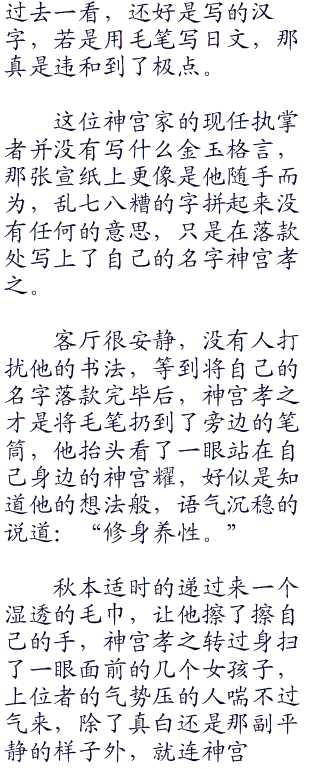 过去一看，还好是写的汉
字，若是用毛笔写日文，那
真是违和到了极点。
这位神宫家的现任执掌
者并没有写什么金玉格言，
那张宣纸上更像是他随手而
为，乱七八糟的字拼起来没
有任何的意思，只是在落款
处写上了自己的名字神宫孝
之。
客厅很安静，没有人打
扰他的书法，等到将自己的
名字落款完毕后，神宫孝之
才是将毛笔扔到了旁边的笔
筒，他抬头看了一眼站在自
己身边的神宫耀，好似是知
道他的想法般，语气沉稳的
说道：“修身养性。”
秋本适时的递过来一个
湿透的毛巾，让他擦了擦自
己的手，神宫孝之转过身扫
了一眼面前的几个女孩子，
上位者的气势压的人喘不过
气来，除了真白还是那副平
静的样子外，就连神宫